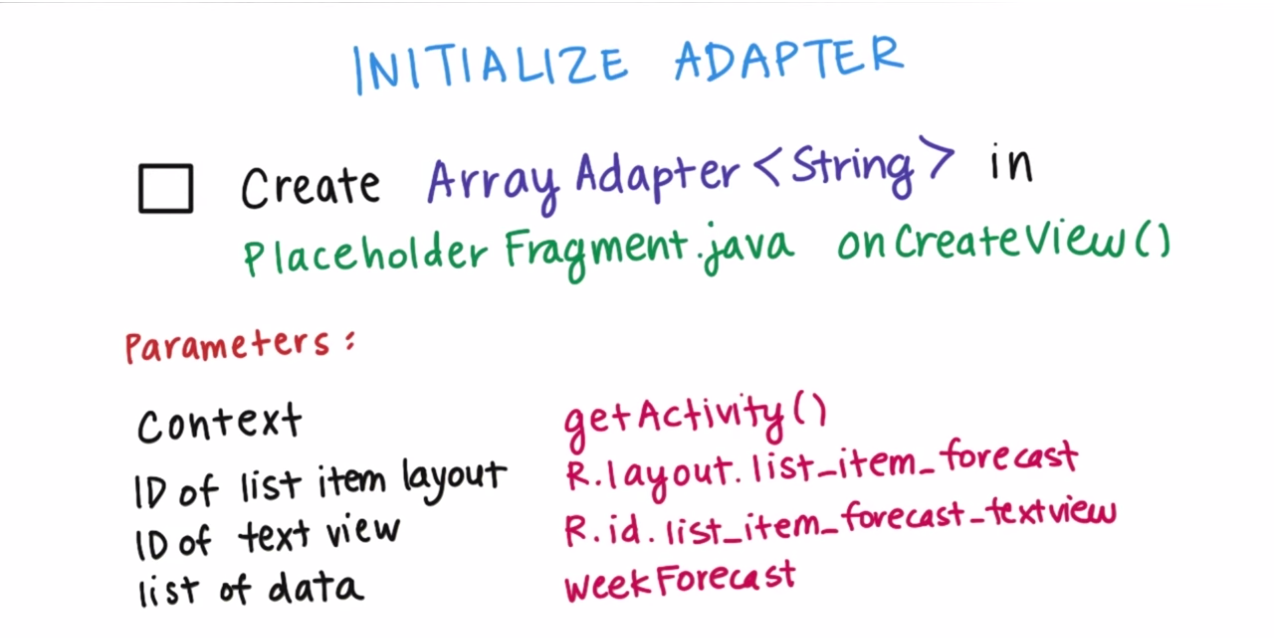 INITIALIZE ADAPTER
Create ArrayAdapter<String> in
PlaceholderFragment.java onCreateView()
Parameters:
Context getActivity()
ID of list item layout R.layout.list_item_forecast
ID of text view R.id.list_item_forecast_textview
list of data weekForecast